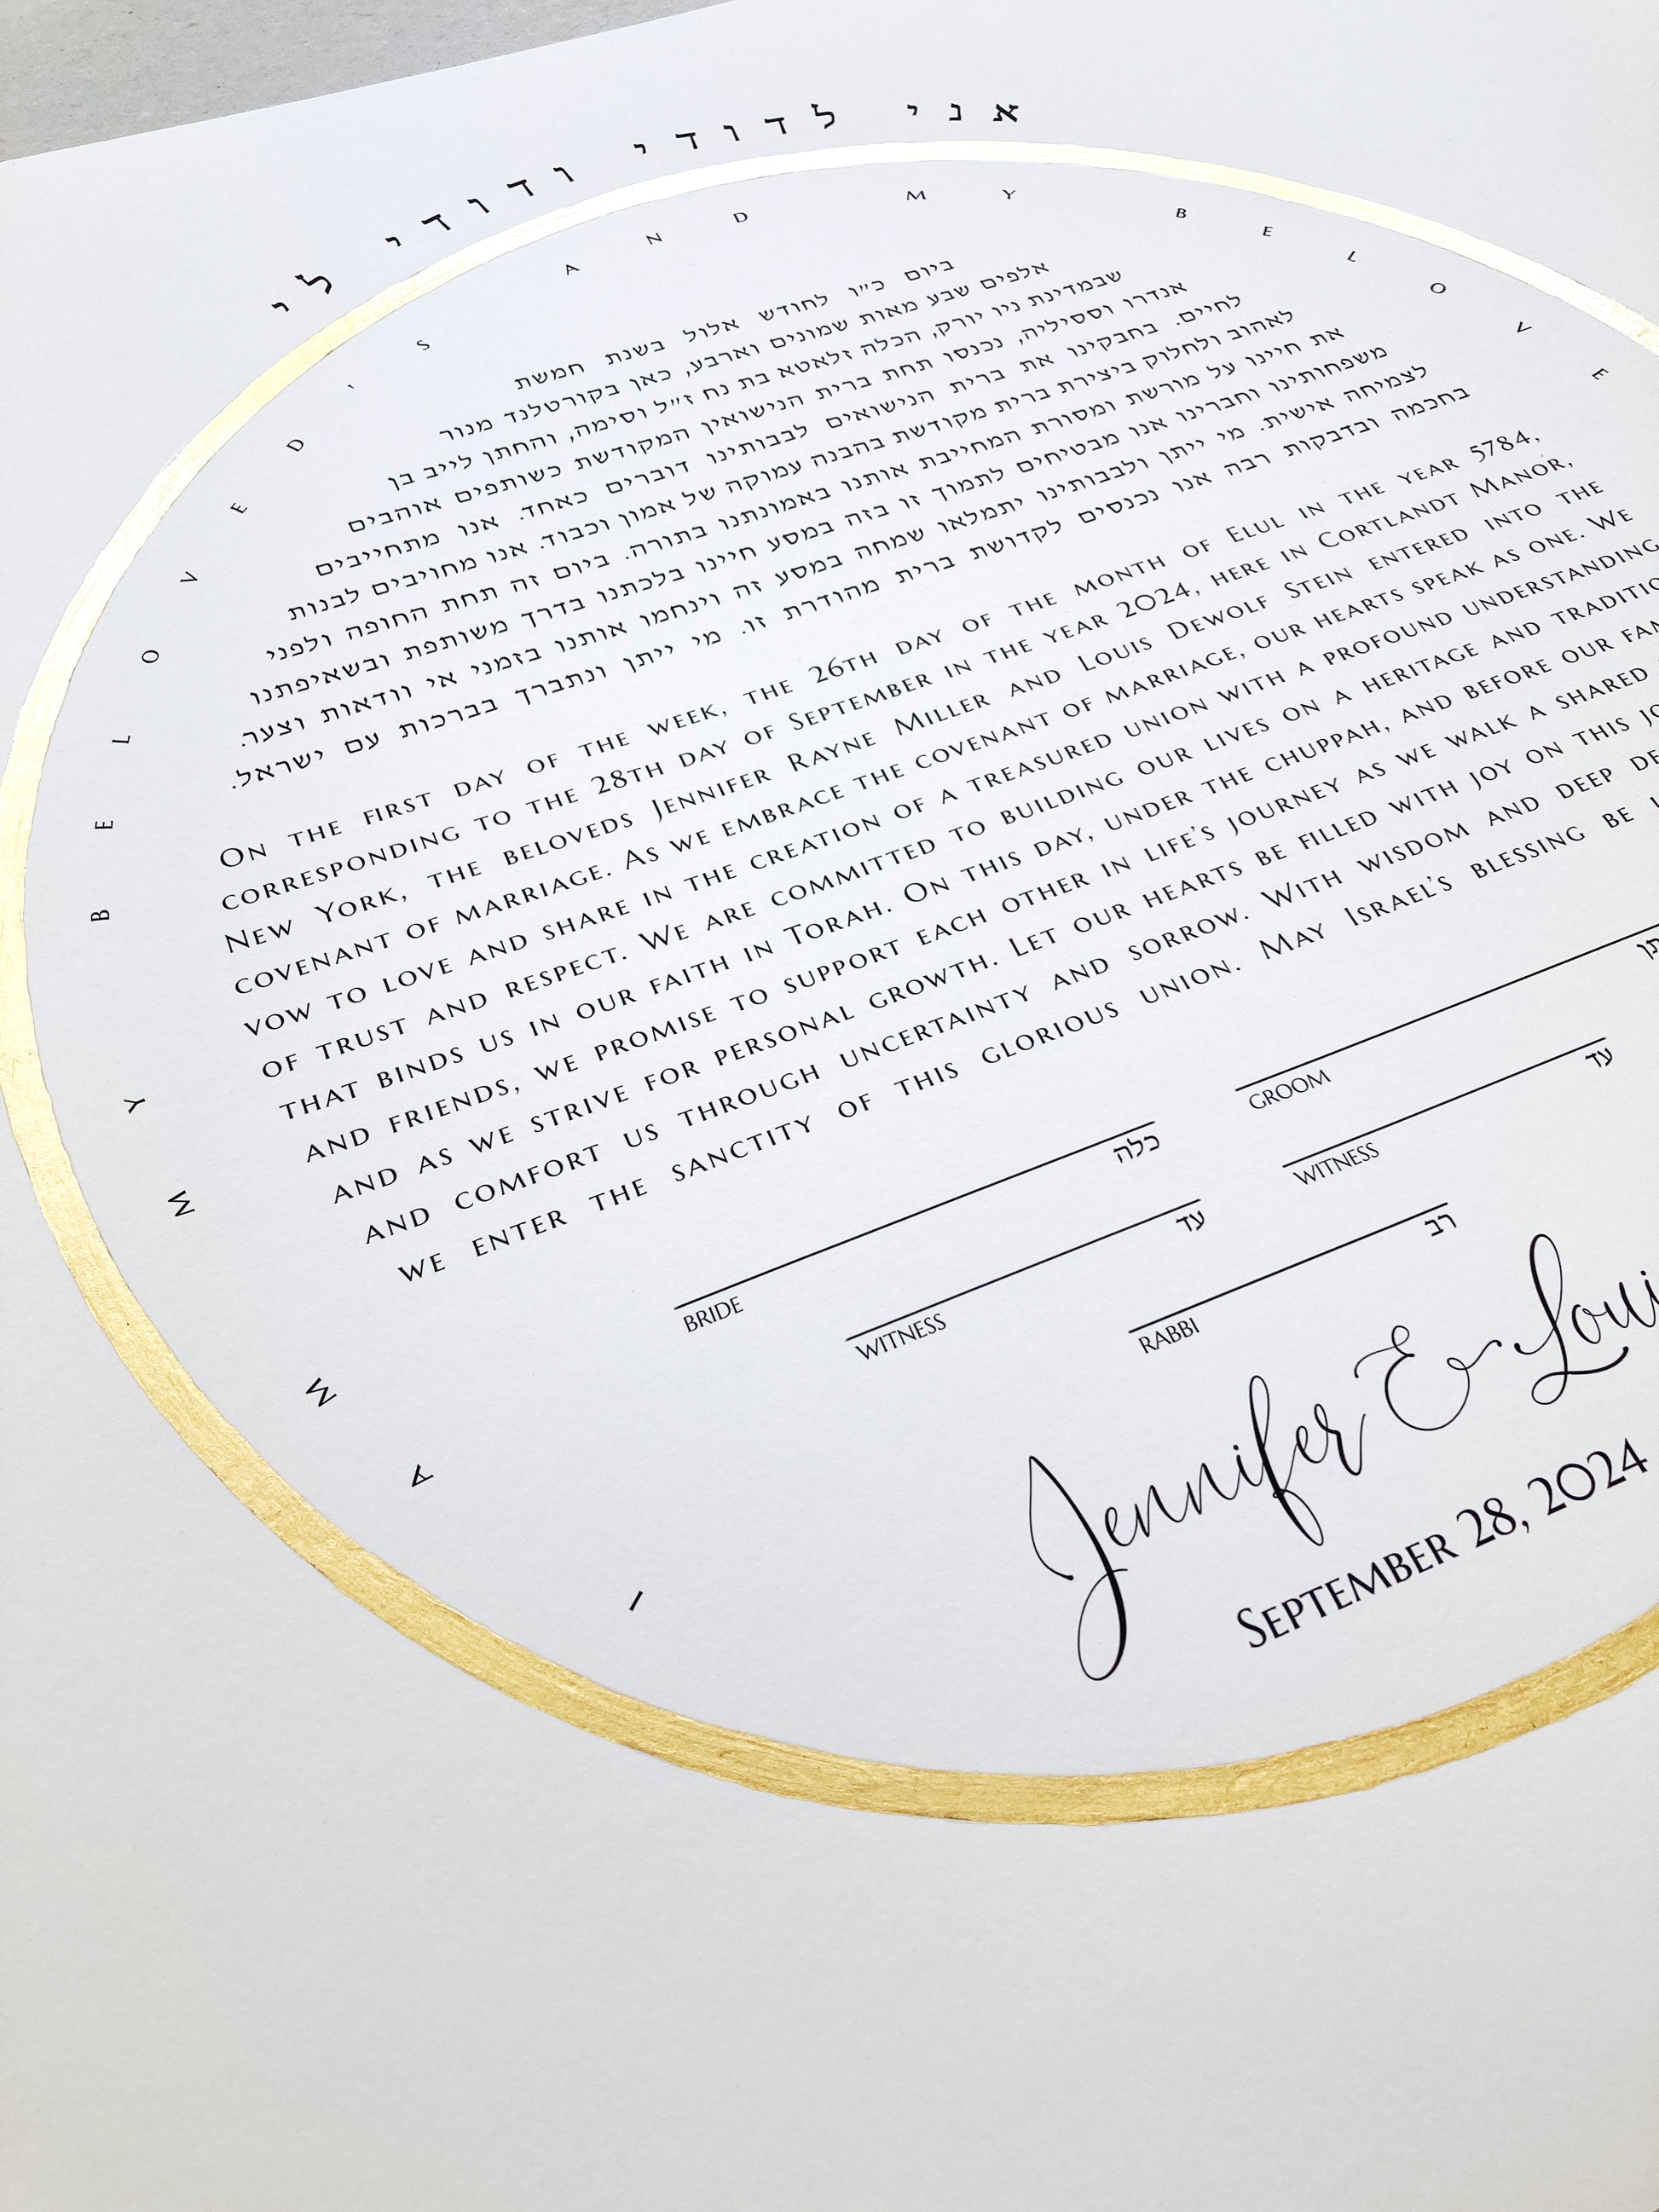 אני לדודי ודודי לי
I AM MY BELOVED'S AND MY BELOVE
ביום כ״ו לחודש אלול בשנת חמשת
אלפים שבע מאות שמונים וארבע, כאן בקורטלנד מנור
שבמדינת ניו יורק, הכלה זלאטא בת נח ז״ל וסימה, והחתן לייב בן
אנדרו וססיליה, נכנסו תחת ברית הנישואין המקודשת כשותפים אוהבים
לחיים. בחבקינו את ברית הנישואים לבבותינו דוברים כאחד. אנו מתחייבים
לאהוב ולחלוק ביצירת ברית מקודשת בהבנה עמוקה של אמון וכבוד. אנו מחויבים לבנות
את חיינו על מורשת ומסורת המחייבת אותנו באמונתנו בתורה. ביום זה תחת החופה ולפני
משפחותינו וחברינו אנו מבטיחים לתמוך זו בזה במסע חיינו בלכתנו בדרך משותפת ובשאיפתנו
לצמיחה אישית. מי ייתן ולבבותינו יתמלאו שמחה במסע זה וינחמו אותנו בזמני אי וודאות וצער.
בחכמה ובדבקות רבה אנו נכנסים לקדושת ברית מהודרת זו. מי ייתן ונתברך בברכות עם ישראל.
On the first day of the week, the 26th day of the month of Elul in the year 5784,
corresponding to the 28th day of September in the year 2024, here in Cortlandt Manor,
New York, the beloveds Jennifer Rayne Miller and Louis Dewolf Stein entered into the
covenant of marriage. As we embrace the covenant of marriage, our hearts speak as one. We
vow to love and share in the creation of a treasured union with a profound understanding
of trust and respect. We are committed to building our lives on a heritage and traditio
that binds us in our faith in Torah. On this day, under the chuppah, and before our fam
and friends, we promise to support each other in life's journey as we walk a shared
and as we strive for personal growth. Let our hearts be filled with joy on this jo
and comfort us through uncertainty and sorrow. With wisdom and deep de
we enter the sanctity of this glorious union. May Israel's blessing be
BRIDE כלה
GROOM תן
WITNESS עד
WITNESS עד
RABBI רב
Jennifer & Loui
September 28, 2024